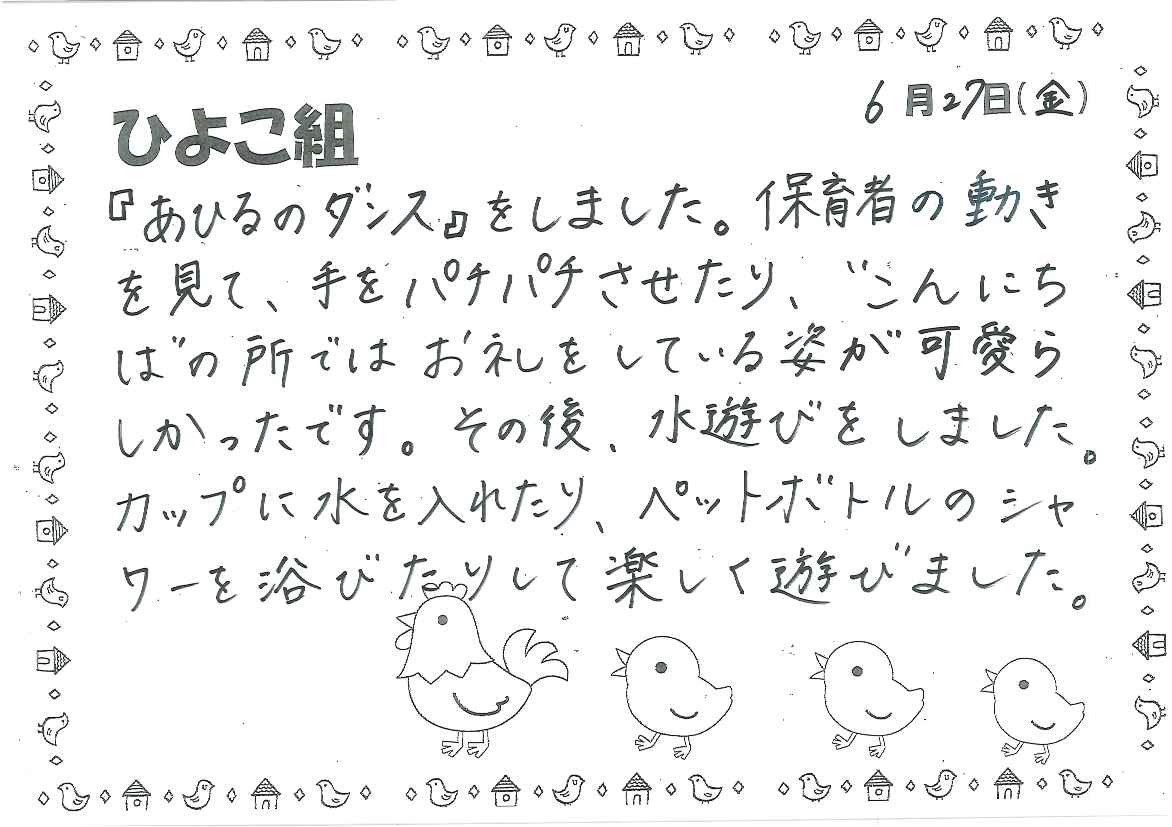 6月27日(金)
ひよこ組
『あひるのダンス』をしました。保育者の動き
を見て、手をパチパチさせたり、"こんにち
は"の所ではお礼をしている姿が可愛ら
しかったです。その後、水遊びをしました。
カップに水を入れたり、ペットボトルのシャ
ワーを浴びたりして楽しく遊びました。